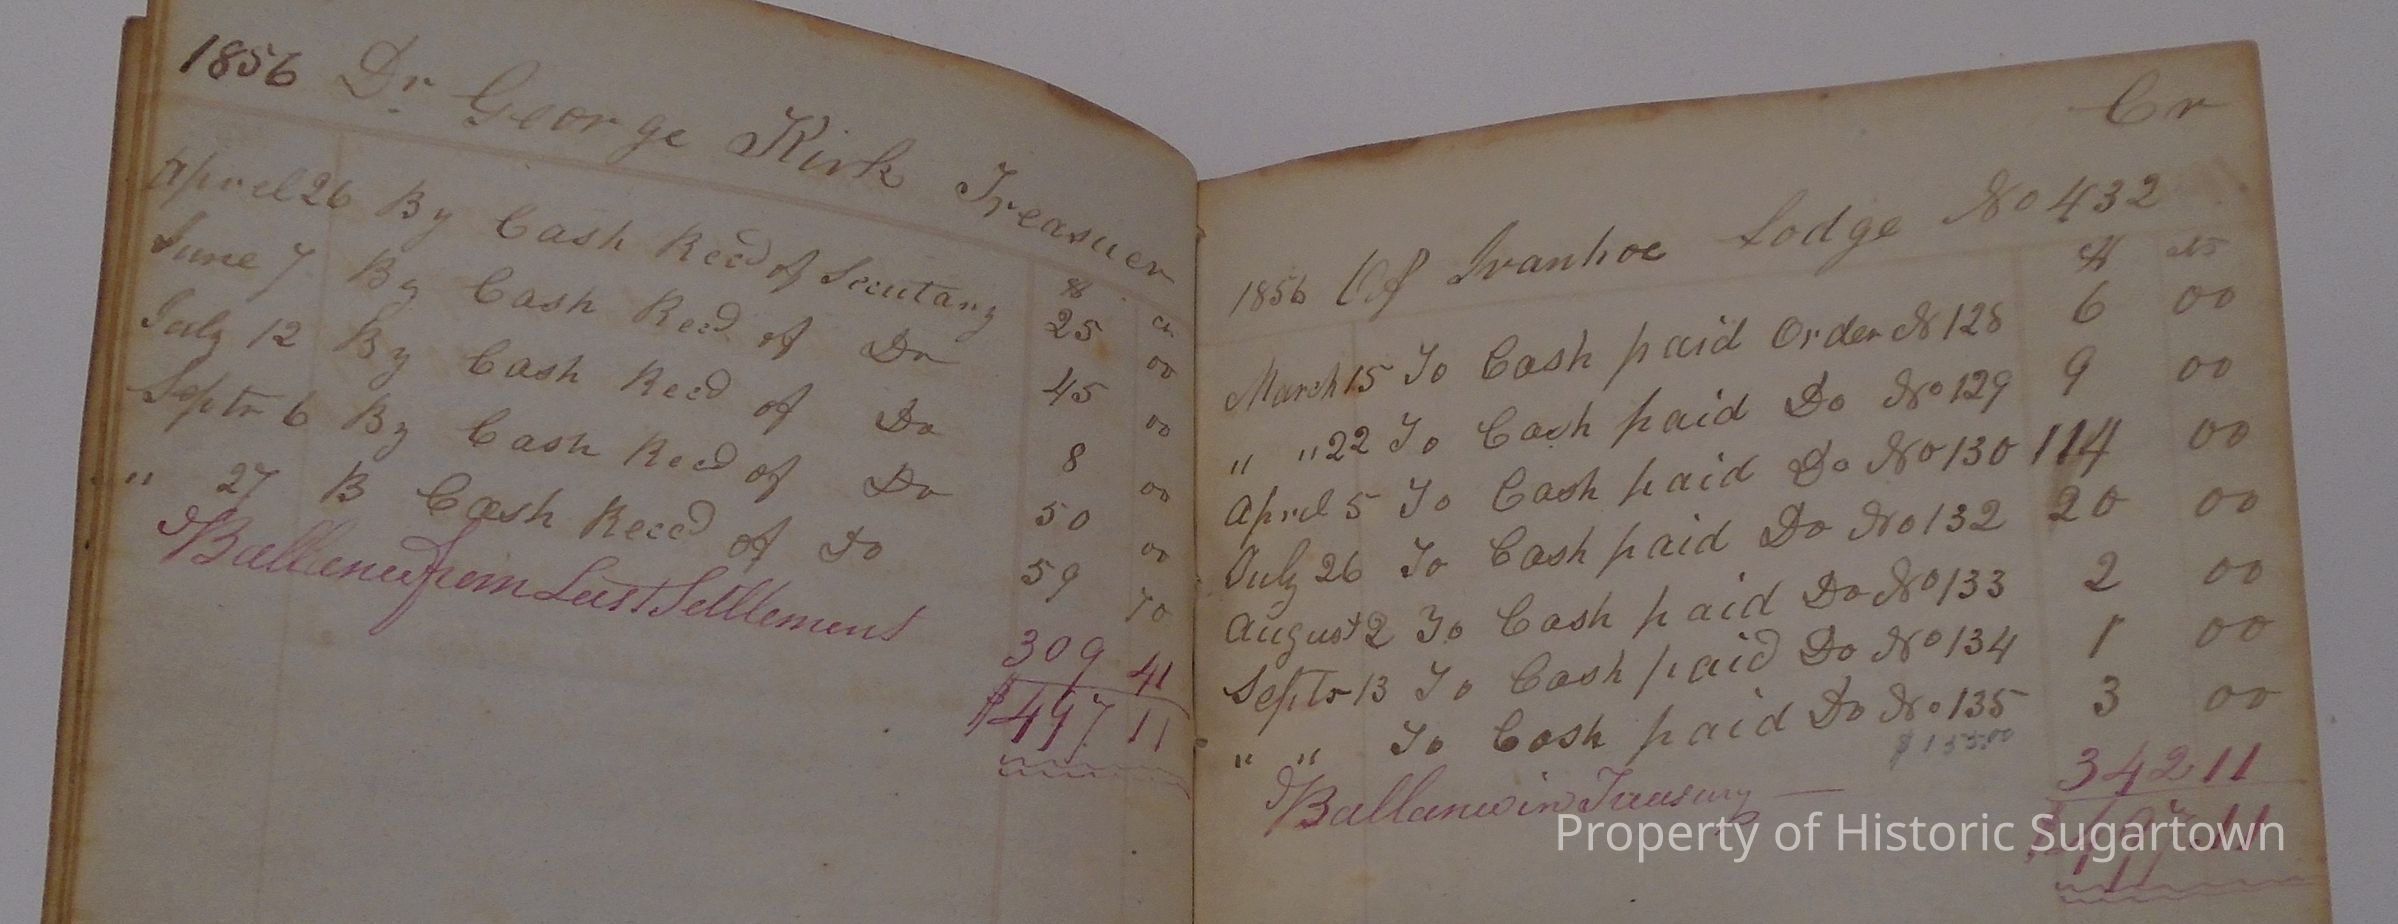 1856 Dr George Kirk Treasuer
$ cts
April 26 By Cash Recd of Secutary 25 00
June 7 By Cash Recd of Do 45 00
July 12 By Cash Recd of Do 8 00
Septr 6 By Cash Recd of Do 50 00
" 27 B Cash Recd of Do 59 70
Ballance from Last Settlement 309 41
$497 11
Cr
1856 Of Ivanhoe Lodge No 432
$ cts
March 15 To Cash paid Order N 128 6 00
" " 22 To Cash paid Do No 129 9 00
April 5 To Cash paid Do No 130 114 00
July 26 To Cash paid Do No 132 20 00
August 2 To Cash paid Do No 133 2 00
Septr 13 To Cash paid Do No 134 1 00
" " To Cash paid Do No 135 3 00
$155.00
Ballance in Treasury 342 11
$497.11
Property of Historic Sugartown